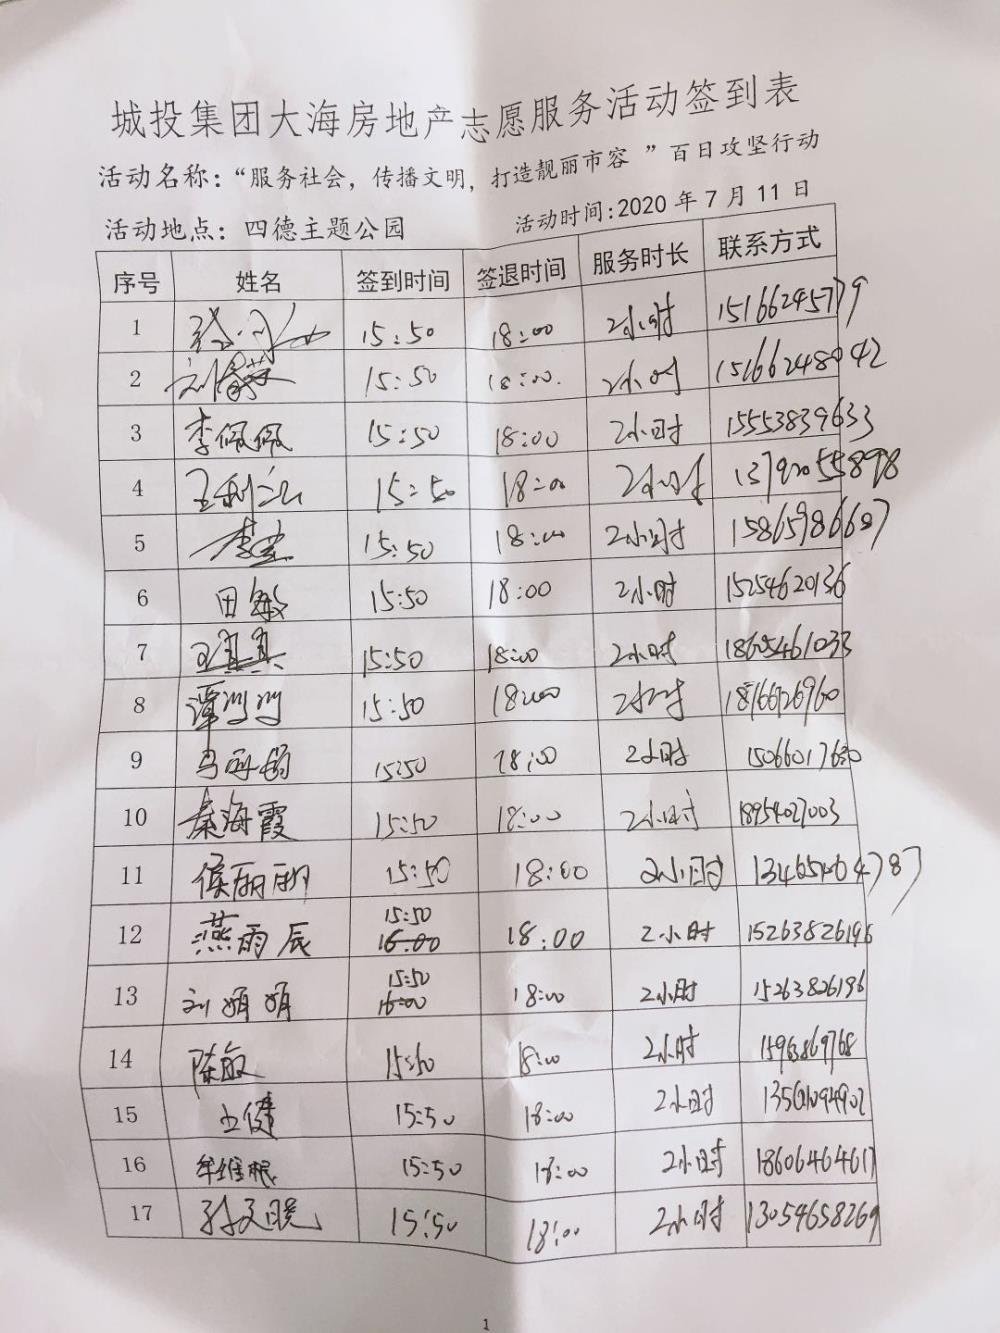 城投集团大海房地产志愿服务活动签到表
活动名称：“服务社会，传播文明，打造靓丽市容 ”百日攻坚行动
活动地点：四德主题公园 活动时间:2020 年 7 月 11 日
序号 姓名 签到时间 签退时间 服务时长 联系方式
1 15:50 18:00 2小时 15166245779
2 15:50 18:00. 2小时 15166248042
3 李佩佩 15:50 18:00 2小时 15553839633
4 15:50 18:00 2小时 13792055898
5 15:50 18:00 2小时 15865986687
6 田敏 15:50 18:00 2小时 15254620136
7 15:50 18:00 2小时 18605461033
8 谭 15:50 18:00 2小时
9 15:50 18:00 2小时
10 秦海霞 15:50 18:00 2小时 18954027003
11 侯丽丽 15:50 18:00 2小时
12 燕雨辰 15:50 16:00 18:00 2小时 15263826196
13 刘娟娟 15:50 16:00 18:00 2小时 15263826196
14 陈敏 15:50 18:00 2小时 15963869768
15 王健 15:50 18:00 2小时
16 牟维根 15:50 18:00 2小时 18606464617
17 孙文晓 15:50 18:00 2小时 13054658269
1